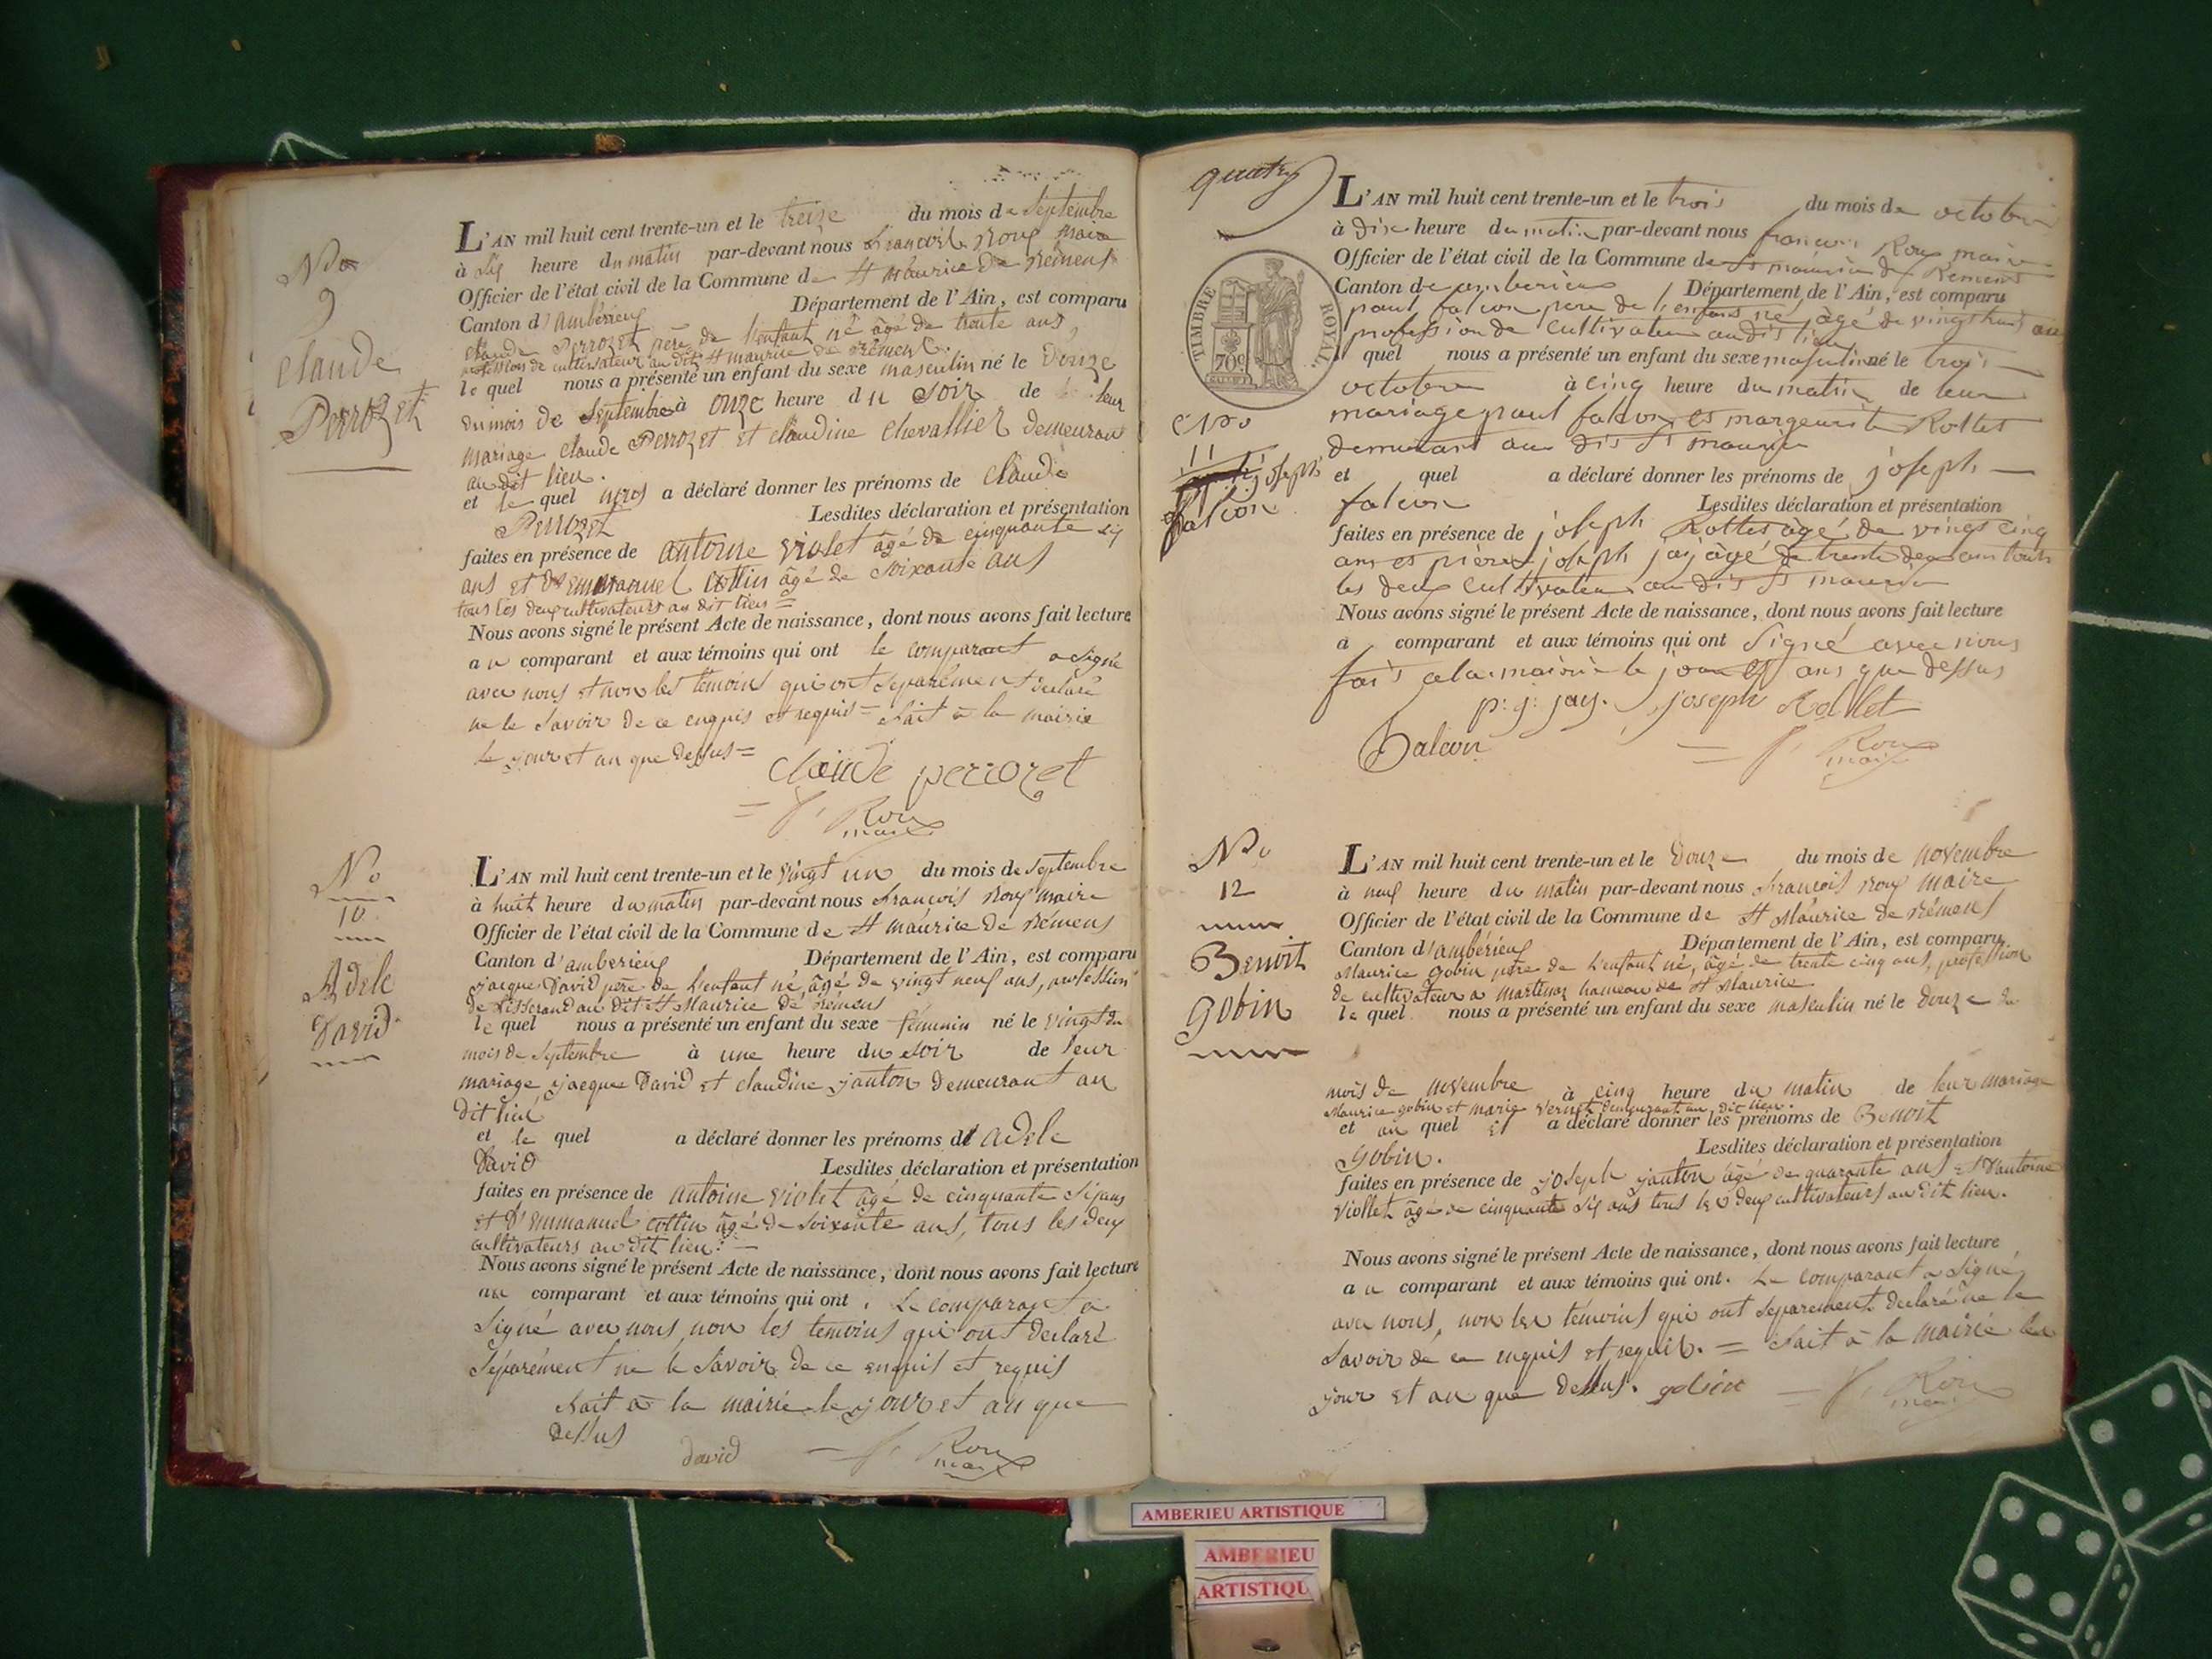 No
9
Claude
Perrozet
L'AN mil huit cent trente-un et le treize du mois de Septembre
à Six heure du matin par-devant nous François Roux maire
Officier de l'état civil de la Commune de St maurice De Rémens
Canton d'ambérieux Département de l'Ain, est comparu
Claude Perrozet père de l'enfant né âgé de trente ans,
profession de cultivateur au dit St maurice de Rémens.
le quel nous a présenté un enfant du sexe masculin né le Douze
du mois de Septembre à onze heure du soir de leur
mariage Claude Perrozet et claudine Chevallier demeurant
au dit lieu.
et le quel a déclaré donner les prénoms de Claude
Perrozet Lesdites déclaration et présentation
faites en présence de antoine violet âgé de cinquante six
ans et D'emmanuel cottin âgé de Soixante ans
tous les deux cultivateurs au dit lieu =
Nous avons signé le présent Acte de naissance, dont nous avons fait lecture
au comparant et aux témoins qui ont le comparant a signé
avec nous et non les témoins qui ont Séparément déclaré
ne le Savoir de ce enquis et requis = fait à la mairie
le jour et an que Dessus =
claude perrozet
= f. Roux
maire
No
10
Adele
David
L'AN mil huit cent trente-un et le vingt un du mois de Septembre
à huit heure du matin par-devant nous François Roux maire
Officier de l'état civil de la Commune de St maurice De Rémens
Canton d'ambérieux Département de l'Ain, est comparu
jacque David père de l'enfant né, âgé de vingt neuf ans, profession
de tisserand au Dit St Maurice de Rémens
le quel nous a présenté un enfant du sexe féminin né le vingt du
mois de Septembre à une heure du soir de leur
mariage jacque David et claudine janton demeurant au
dit lieu
et le quel a déclaré donner les prénoms de adele
David Lesdites déclaration et présentation
faites en présence de antoine violet âgé de cinquante six ans
et D'emmanuel cottin âgé de Soixante ans, tous les deux
cultivateurs au dit lieu. =
Nous avons signé le présent Acte de naissance, dont nous avons fait lecture
au comparant et aux témoins qui ont . Le comparant a
Signé avec nous non les temoins qui ont declaré
Séparément ne le Savoir de ce enquis et requis
fait à la mairie le jour et an que
dessus
david = f. Roux
maire
quatre
TIMBRE ROYAL
70c
No
11
joseph
falcon
L'AN mil huit cent trente-un et le trois du mois de octobre
à Dix heure du matin par-devant nous francois Roux maire
Officier de l'état civil de la Commune de St maurice de Remens
Canton de amberieux Département de l'Ain, est comparu
paul falcon pere de l'enfant né âgé de vingt huit ans
profession de cultivateur au dis lieu
quel nous a présenté un enfant du sexe masculin né le trois
octobre à cinq heure du matin de leur
mariage paul falcon es margeurite Rollet
demurant au dis St maurice
et quel a déclaré donner les prénoms de joseph
falcon Lesdites déclaration et présentation
faites en présence de joseph Rollet âgé de vings cinq
ans es pièrre joseph jay âgé de trente deux ans tous
les deux cultivateur au dis St maurice
Nous avons signé le présent Acte de naissance, dont nous avons fait lecture
a comparant et aux témoins qui ont Signé avec nous
fais a la mairie le jour es ans que dessus
p: j: jay. joseph Rollet
falcon = f. Roux
maire
No
12
Benoit
Gobin
L'AN mil huit cent trente-un et le Douze du mois de novembre
à neuf heure du matin par-devant nous François Roux maire
Officier de l'état civil de la Commune de St Maurice de Rémens
Canton d'ambérieux Département de l'Ain, est comparu
Maurice gobin père de l'enfant né, âgé de trente cinq ans, profession
de cultivateur a martinaz hameau de St Maurice
le quel nous a présenté un enfant du sexe masculin né le Douze du
mois de novembre à cinq heure du matin de leur mariage
Maurice gobin et marie Vernet demeurant au dit lieu.
et au quel il a déclaré donner les prénoms de Benoit
Gobin. Lesdites déclaration et présentation
faites en présence de joseph janton âgé de quarante ans et D'antoine
Viollet âgé de cinquante Six ans tous les deux cultivateurs au dit lieu.
Nous avons signé le présent Acte de naissance, dont nous avons fait lecture
au comparant et aux témoins qui ont. Le comparant a Signé
avec nous, non les témoins qui ont Séparement declaré ne le
Savoir de ce enquis et requis. = fait à la mairie les
jour et an que dessus. gobin = f. Roux
maire
AMBERIEU ARTISTIQUE
AMBERIEU
ARTISTIQU